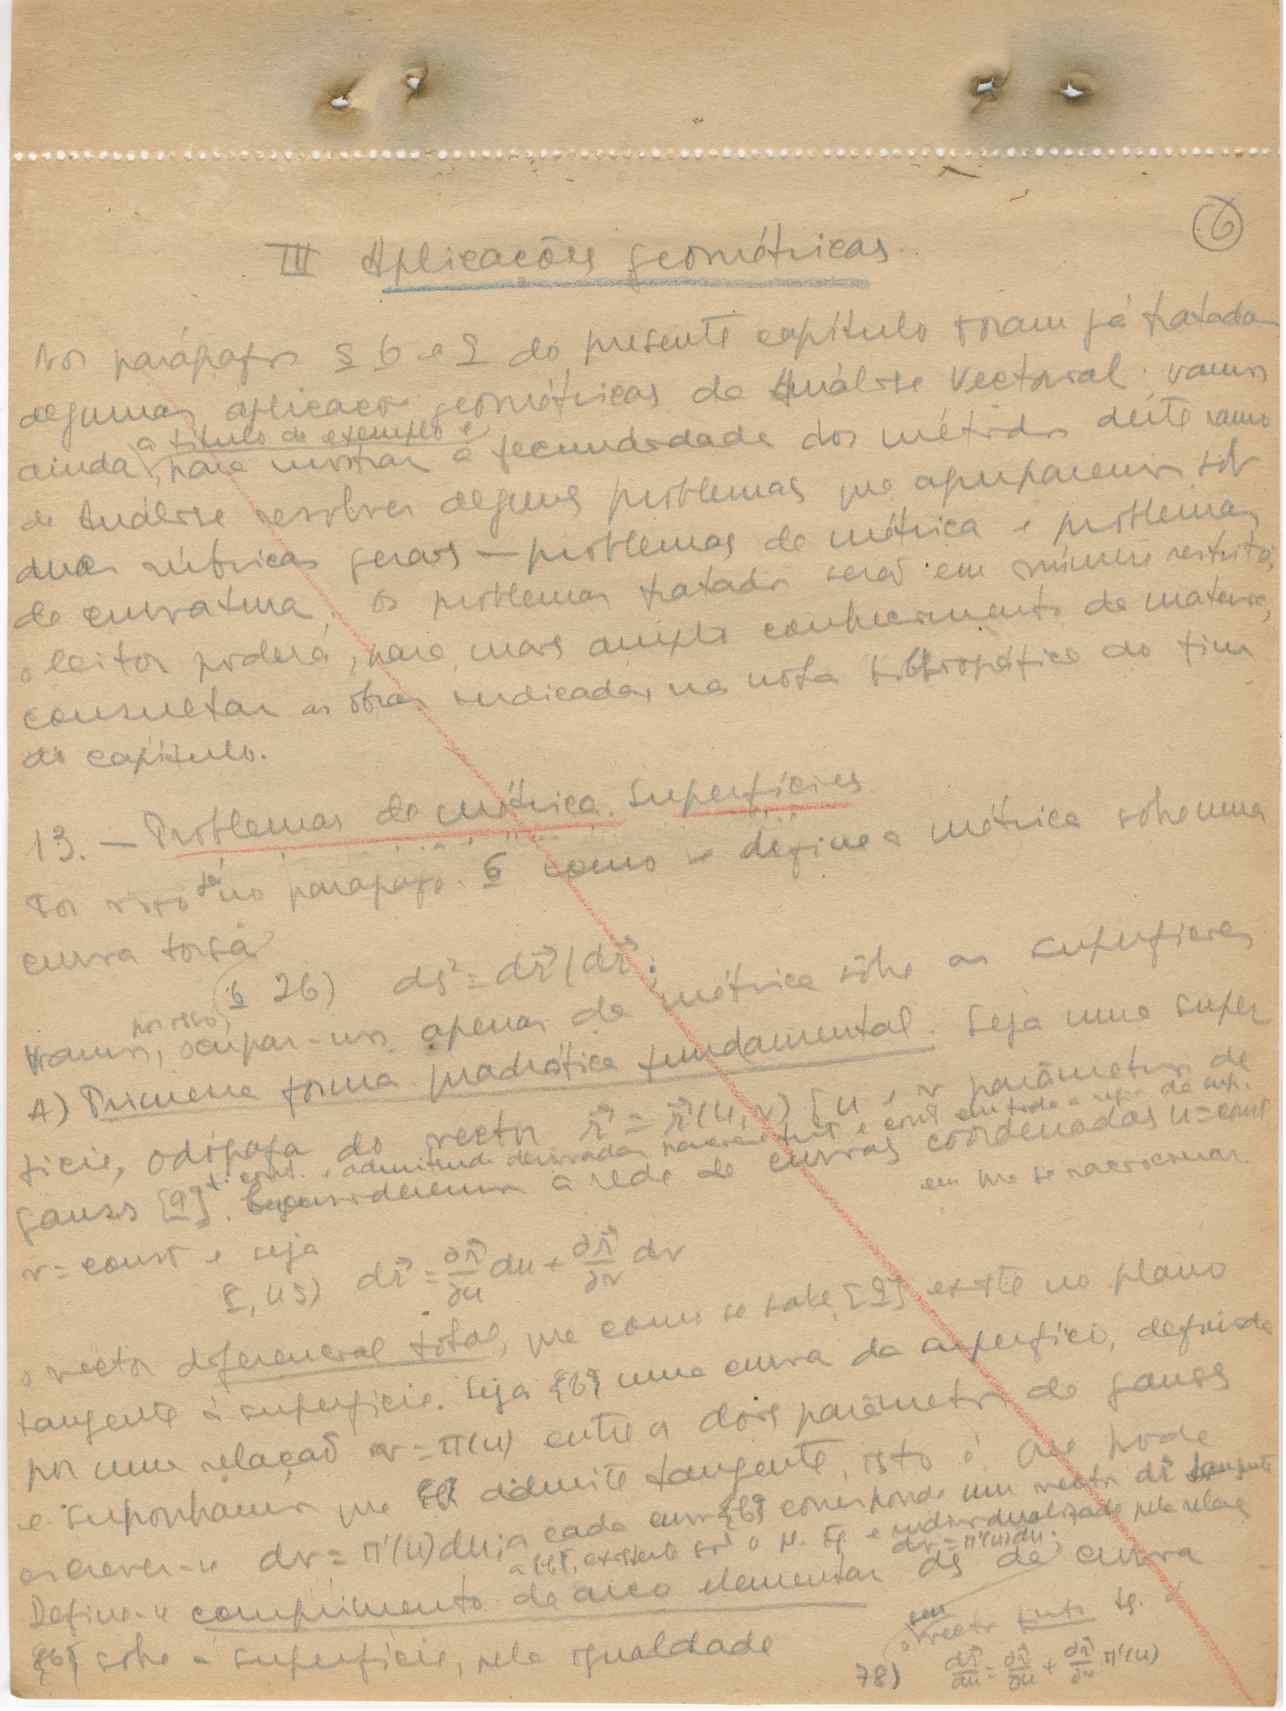 6
III Aplicações geométricas.
Nos parágrafos § 6 e 9 do presente capítulo foram já tratadas
algumas aplicações geométricas da Análise Vectorial. Vamos
a título de exemplo e
ainda, para mostrar a fecundidade dos métodos dêste ramo
da Análise resolver alguns problemas que agruparemos sob
duas rúbricas gerais — problemas de métrica e problemas
de curvatura. Os problemas tratados serão em número restrito,
o leitor poderá, para mais amplo conhecimento da matéria,
consultar as obras indicadas na nota bibliográfica do fim
do capítulo.
13. — Problemas de métrica. Superfícies
Foi visto já no parágrafo 6 como se define a métrica sobre uma
curva torsa
6 26) ds² = dr⃗ | dr⃗ ;
por isso,
Vamos, ocupar-nos apenas da métrica sôbre as superfícies
A) Primeira forma quadrática fundamental. Seja uma super
fície, odógrafa do vector r⃗ = r⃗(u,v) [u e v parâmetros de
cont. e admitindo derivadas
gauss [9]. a rede de curvas coordenadas u=const
em que se
v = const e seja
dr⃗ = ∂r⃗/∂u du + ∂r⃗/∂v dv
o vector diferencial total, que como se sabe, [9] existe no plano
tangente à superfície. Seja uma curva da superfície, definida
por uma relação v = π(u) entre os dois parâmetros de gauss
e suponhamos que admite tangente, isto é que pode
escrever-se dv = π'(u)du; a cada curva corresponde um vector dr⃗ tangente
existente sob o e individualizado pela relação
dv = π'(u)du.
Define-se comprimento de arco elementar ds da curva
sobre a superfície, pela igualdade
seu
o vector tg.
78) dr⃗/du = ∂r⃗/∂u + ∂r⃗/∂v π'(u)